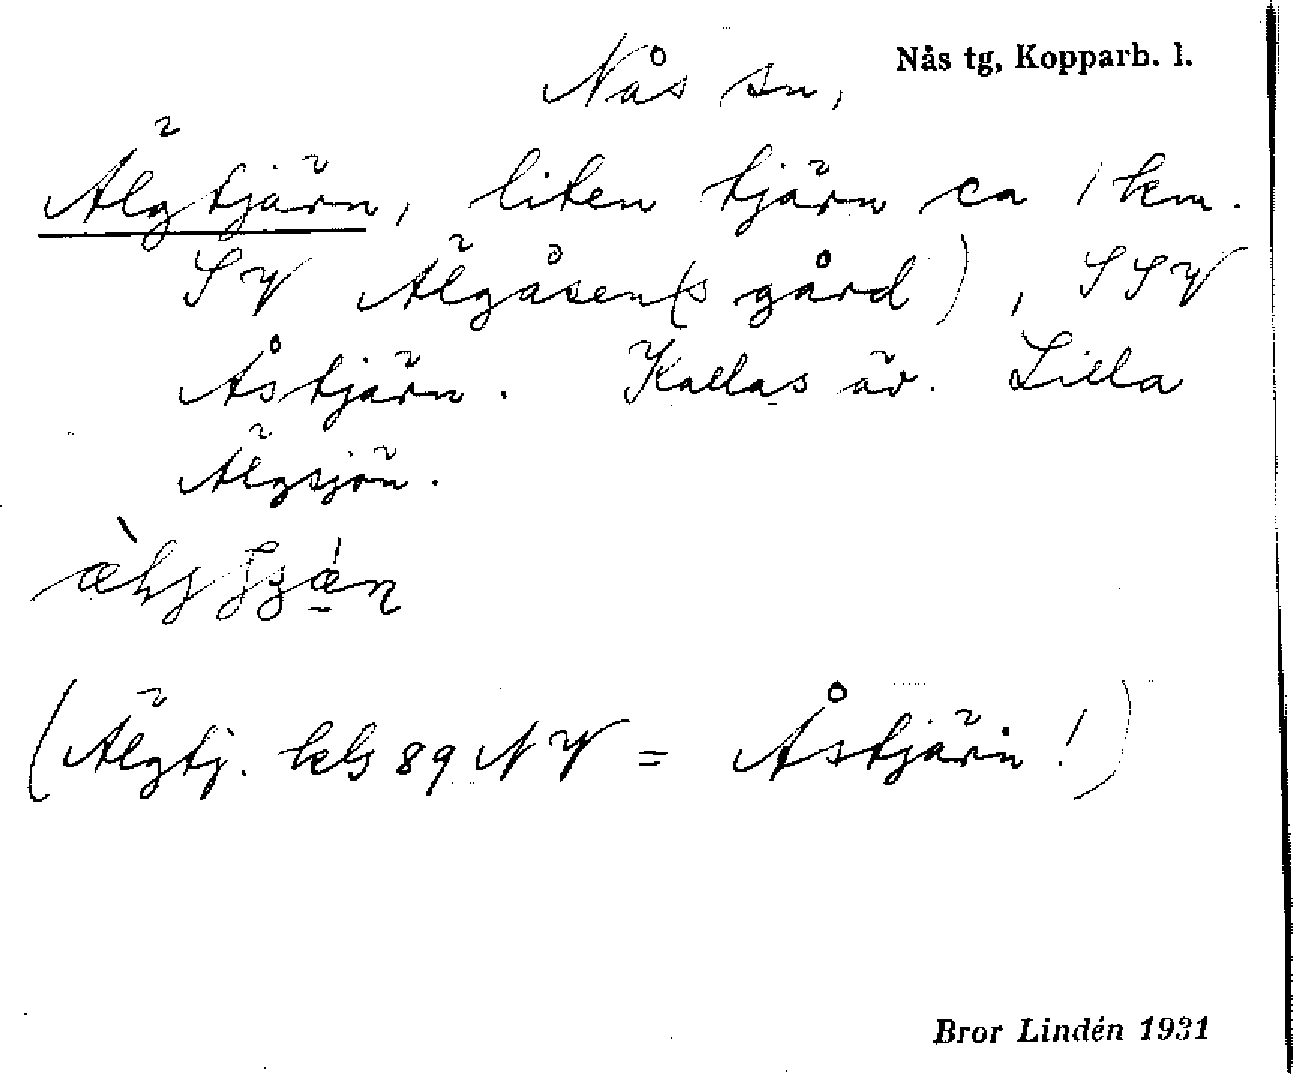 Nås tg, Kopparb. l.
Nås sn,
Älgtjärn, liten tjärn ca 1 km.
SV Älgåsen(s gård), SSV
Åstjärn. Kallas äv. Lilla
Älgsjön.
(Älgtj. kbl 89 NV = Åstjärn!)
Bror Lindén 1931